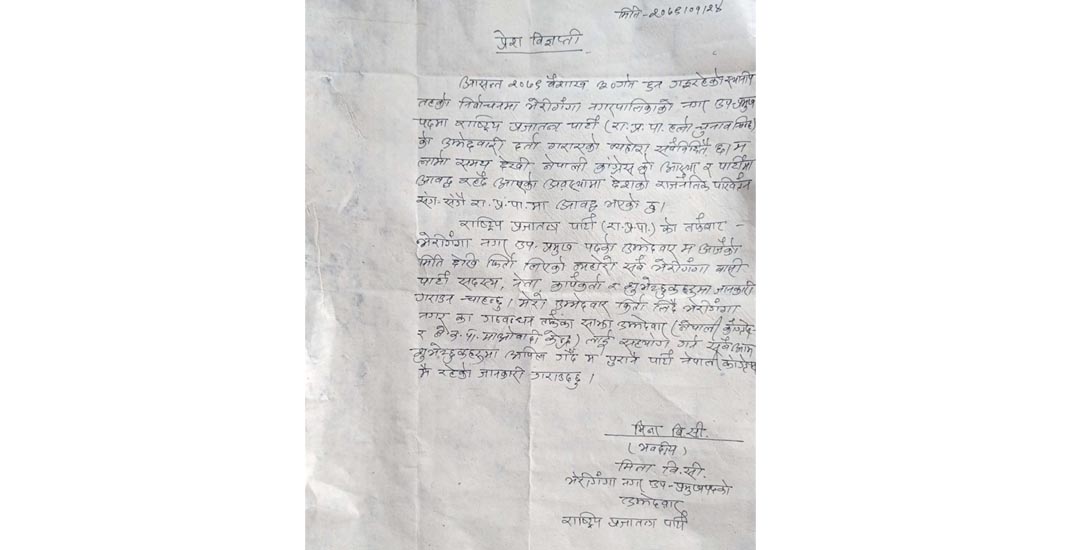 मिति-२०७९/०१/२४
प्रेश विज्ञप्ती
आसन्न २०७९ वैशाख ३०गते हुन गइरहेको स्थानीय
तहको निर्वाचनमा भेरीगंगा नगरपालिकाको नगर उप-प्रमुख
पदमा राष्ट्रिय प्रजातन्त्र पार्टी (रा.प्र.पा. हलो चुनाव चिन्ह)
को उम्मेदवारी दर्ता गराएको व्यहोरा सर्वविदितै छ। म
लामो समय देखी नेपाली कांग्रेस को आस्था र पार्टीमा
आवद्ध रहँदै आएको अवस्थामा देशको राजनैतिक परिवर्तन
संग-संगै रा.प्र.पा.मा आवद्ध भएको छु।
राष्ट्रिय प्रजातन्त्र पार्टी (रा.प्र.पा.) को तर्फवाट -
भेरीगंगा नगर उप-प्रमुख पदको उम्मेदवार म आजैको
मिति देखि फिर्ता लिएको व्यहोरा सर्व भेरीगंगा वासी
पार्टी सदस्य, नेता, कार्यकर्ता र शुभेच्छुकहरुमा जानकारी
गराउन चाहन्छु। मेरो उम्मेदवार फिर्ता लिदै भेरीगंगा
नगर का गठवन्धन तर्फका साझा उम्मेदवार (नेपाली काँग्रेस
र ने.क.पा.माओवादी केन्द्र) लाई सहयोग गर्न सर्वै आम
शुभेच्छुकहरुमा अपिल गर्दै म पुरानै पार्टी नेपाली काँग्रेस
मै रहेको जानकारी गराउदछु।
मिना वि.सी.
(भवदीय)
मिना वि.सी.
भेरीगंगा नगर उप-प्रमुखपदको
उम्मेदवार
राष्ट्रिय प्रजातन्त्र पार्टी